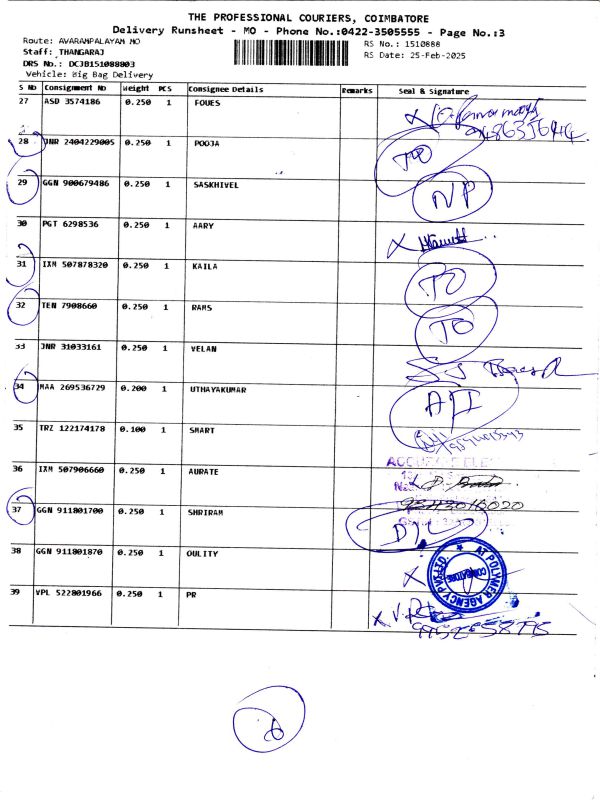 THE PROFESSIONAL COURIERS, COIMBATORE
Delivery Runsheet - MO - Phone No.:0422-3505555 - Page No.:3
Route: AVARAMPALAYAM MO
RS No.: 1510888
Staff: THANGARAJ
RS Date: 25-Feb-2025
DRS No.: DCJB151088803
Vehicle: Big Bag Delivery
S No Consignment No Weight PCS Consignee Details Remarks Seal & Signature
27 ASD 3574186 0.250 1 FOUES X
28 JNR 2404229005 0.250 1 POOJA TO
29 GGN 900679486 0.250 1 SASKHIVEL NP
30 PGT 6298536 0.250 1 AARY X
31 IXM 507878320 0.250 1 KAILA TO
32 TEN 7908660 0.250 1 RAMS TO
33 JNR 31033161 0.250 1 VELAN
34 MAA 269536729 0.200 1 UTHAYAKUMAR
35 TRZ 122174178 0.100 1 SMART
36 IXM 507906660 0.250 1 AURATE
37 GGN 911801700 0.250 1 SHRIRAM D/L
38 GGN 911801870 0.250 1 OULITY X AT POLYMER AGENCY PVT.LTD. COIMBATORE
39 VPL 522801966 0.250 1 PR X